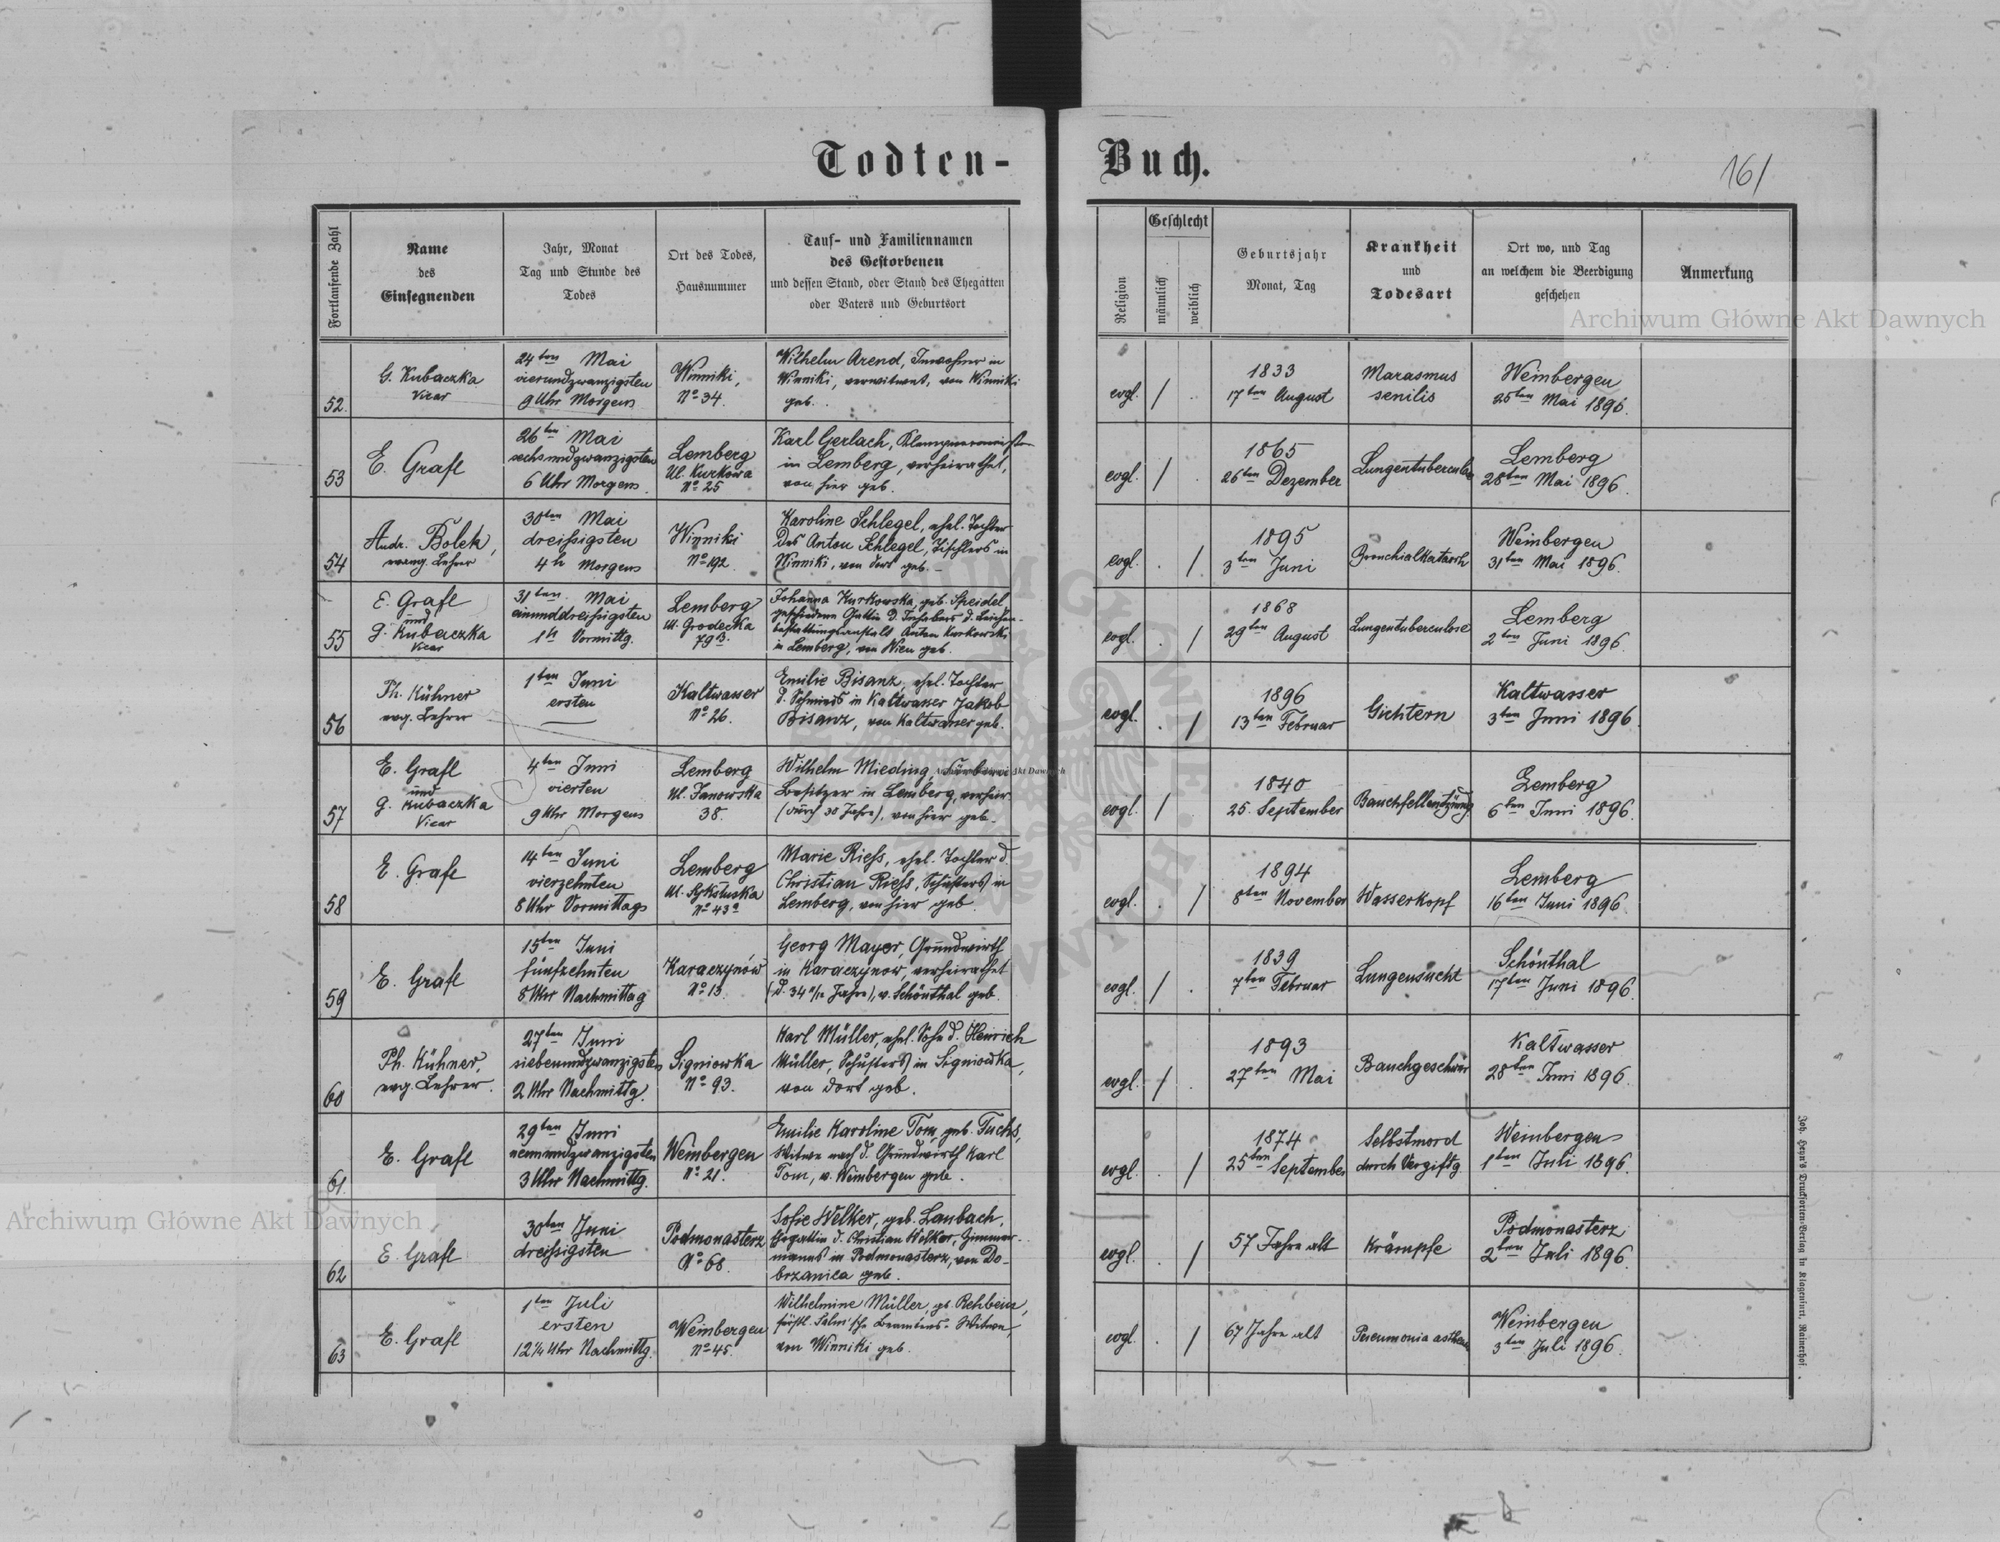 Todten-Buch.
161
Fortlaufende Zahl
Name
des
Einsegnenden
Jahr, Monat
Tag und Stunde des
Todes
Ort des Todes,
Hausnummer
Tauf- und Familiennamen
des Gestorbenen
und dessen Stand, oder Stand des Ehegatten
oder Vaters und Geburtsort
Religion
Geschlecht
männlich
weiblich
Geburtsjahr
Monat, Tag
Krankheit
und
Todesart
Ort wo, und Tag
an welchem die Beerdigung
geschehen
Anmerkung
Archiwum Główne Akt Dawnych
52
G. Kubaczka
Vicar
24ten Mai
vierundzwanzigsten
9 Uhr Morgens
Winniki,
No 34.
Wilhelm Arend, Inwohner in
Winniki, verwitwet, von Winniki
geb.
evgl. /
1833
17ten August
Marasmus
senilis
Weinbergen
25ten Mai 1896.
53
E. Grafl
26ten Mai
sechsundzwanzigsten
6 Uhr Morgens.
Lemberg
Ul. Kurkowa
No 25
Karl Gerlach,
in Lemberg, verheirathet,
von hier geb.
evgl. /
1865
26ten Dezember
Lungentuberculose
Lemberg
28ten Mai 1896.
54
Andr. Bolek,
evang. Lehrer
30ten Mai
dreissigsten
4h Morgens
Winniki
No 192.
Karoline Schlegel, ehel. Tochter
des Anton Schlegel, Tischlers in
Winniki, von dort geb.
evgl. /
1895
3ten Juni
Bronchialkatarrh
Weinbergen
31ten Mai 1896.
55
E. Grafl
und
G. Kubaczka
Vicar
31ten Mai
einunddreissigsten
1h Vormittg.
Lemberg
Ul. Grodecka
79B.
Johanna Kurkowska, geb. Speidel
geschiedene Gattin d. Inhabers d. Leichen-
bestattungsanstalt Anton Kurkowski
in Lemberg, von Wien geb.
evgl. /
1868
29ten August
Lungentuberculose
Lemberg
2ten Juni 1896.
56
Ph. Kühner
evg. Lehrer
1ten Juni
ersten
Kaltwasser
No 26.
Emilie Bisanz, ehel. Tochter
d. Schmieds in Kaltwasser Jakob
Bisanz, von Kaltwasser geb.
evgl. /
1896
13ten Februar
Gichtern
Kaltwasser
3ten Juni 1896.
57
E. Grafl
und
G. Kubaczka
Vicar
4ten Juni
vierten
9 Uhr Morgens
Lemberg
Ul. Janowska
38.
Wilhelm Mieding,
Besitzer in Lemberg, verheir.
(durch 30 Jahre), von hier geb.
evgl. /
1840
25. September
Bauchfellentzündg.
Lemberg
6ten Juni 1896.
58
E. Grafl
14ten Juni
vierzehnten
8 Uhr Vormittags
Lemberg
Ul. Sykstuska
No 43a
Marie Riess, ehel. Tochter d.
Christian Riess, Schusters in
Lemberg, von hier geb.
evgl. /
1894
8ten November
Wasserkopf
Lemberg
16ten Juni 1896.
59
E. Grafl
15ten Juni
fünfzehnten
8 Uhr Nachmittag
Karaczynów
No 13.
Georg Mayer, Grundwirth
in Karaczynow, verheirathet
(d. 34 1/2 Jahre), v. Schönthal geb.
evgl. /
1839
7ten Februar
Lungensucht
Schönthal
17ten Juni 1896.
60
Ph. Kühner,
evg. Lehrer.
27ten Juni
siebenundzwanzigsten
2 Uhr Nachmittg.
Signiowka
No 93.
Karl Müller, ehel. Sohn d. Heinrich
Müller, Schusters in Signiowka,
von dort geb.
evgl. /
1893
27ten Mai
Bauchgeschwür
Kaltwasser
28ten Juni 1896.
61.
E. Grafl
29ten Juni
neunundzwanzigsten
3 Uhr Nachmittg.
Weinbergen
No 21.
Emilie Karoline Tom, geb. Fuchs,
Witwe nach d. Grundwirth Karl
Tom, v. Weinbergen geb.
evgl. /
1874
25ten September
Selbstmord
durch Vergiftg.
Weinbergen
1ten Juli 1896.
62
E. Grafl
30ten Juni
dreissigsten
Podmonasterz
No 68.
Sofie Welker, geb. Laubach,
Ehegattin d. Christian Welker, Zimmer-
manns in Podmonasterz, von Do-
brzanica geb.
evgl. /
57 Jahre alt
Krämpfe
Podmonasterz
2ten Juli 1896.
63
E. Grafl
1ten Juli
ersten
12 1/4 Uhr Nachmittg.
Weinbergen
No 45.
Wilhelmine Müller, gb. Rehbein,
fürstl. Salm'sche Beamtens-Witwe,
von Winniki geb.
evgl. /
67 Jahre alt
Pneumonia
Weinbergen
3ten Juli 1896.
Joh. Heyn's Drucksorten-Verlag in Klagenfurt, Rainerhof.
Archiwum Główne Akt Dawnych